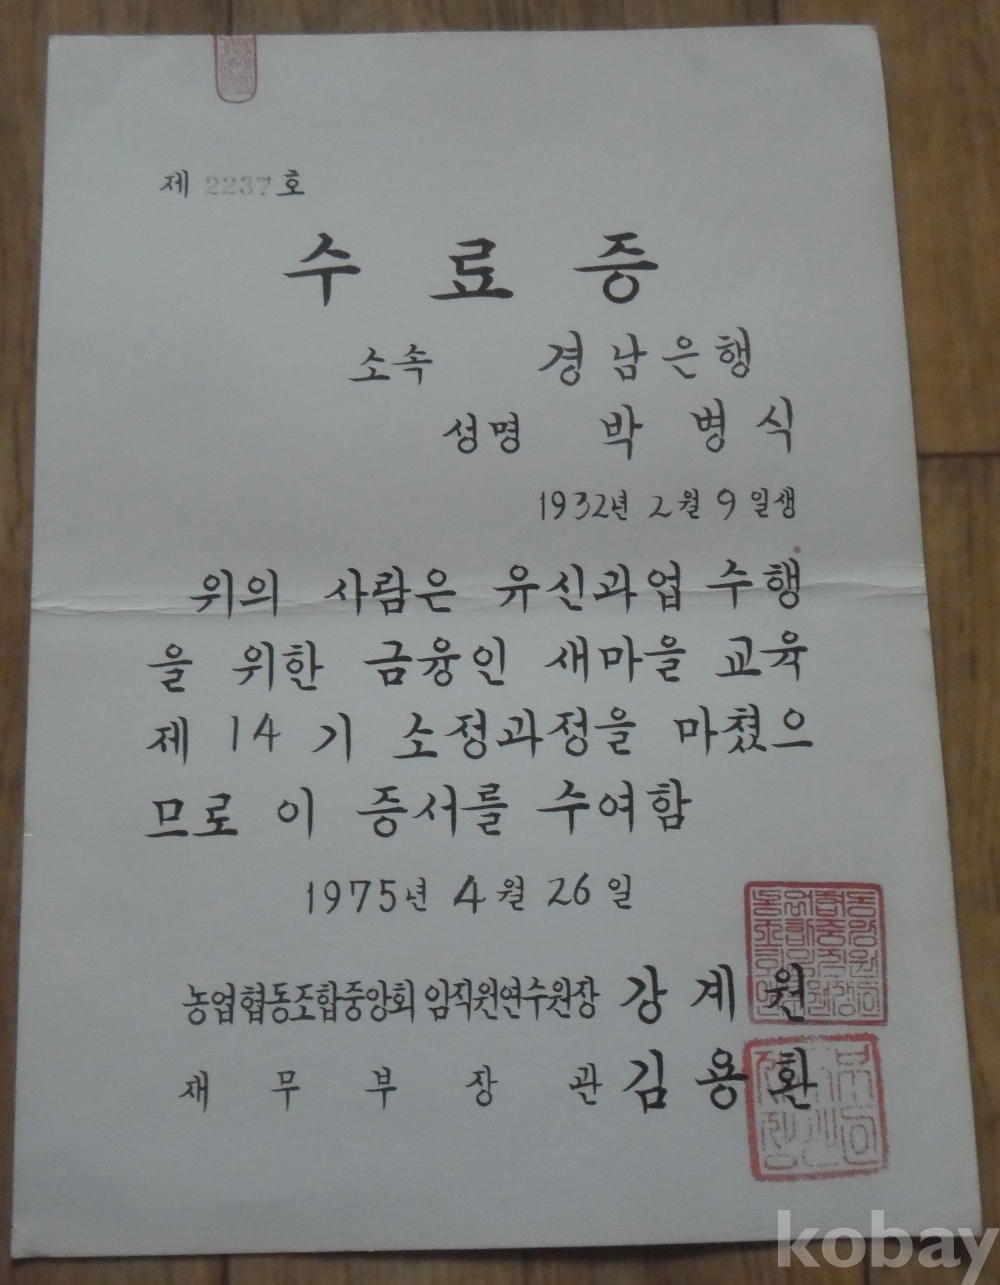 제 2237 호
수 료 증
소속 경남은행
성명 박 병 식
1932년 2월 9일생
위의 사람은 유신과업 수행
을 위한 금융인 새마을 교육
제 14 기 소정과정을 마쳤으
므로 이 증서를 수여함
1975년 4월 26일
농업협동조합중앙회 임직원연수원장 강 계 원
재 무 부 장 관 김 용 환
kobay